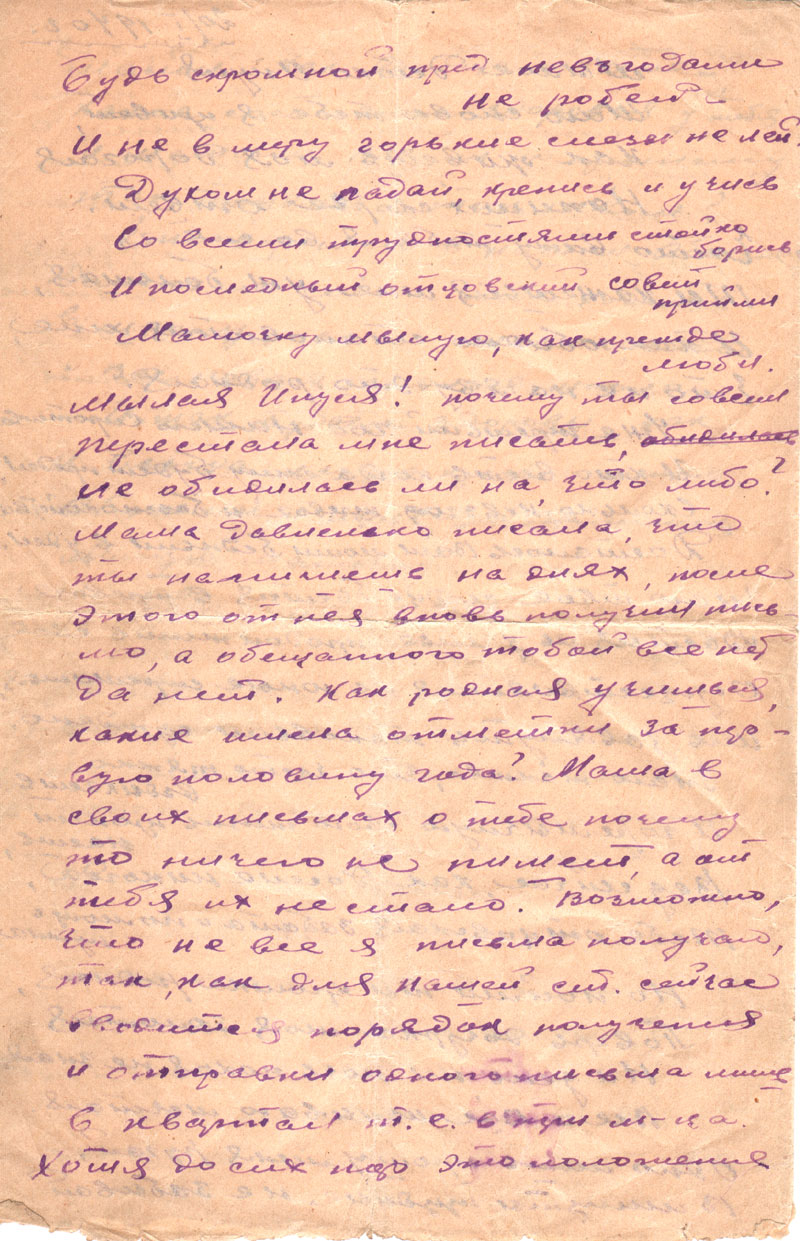 Будь скромной пред невзгодами
не робей
И не в меру горькие слезы не лей.
Духом не падай, крепись и учись
Со всеми трудностями стойко
борись
И последний отцовский совет
прийми
Мамочку мылую, как прежде
люби.
Мылая Инуся! почему ты совсем
перестала мне писать, обиделась
не обиделась ли на, что либо?
Мама давненько писала, что
ты напишешь на днях, после
этого от нея вновь получил пись
мо, а обещанного тобой все нет
да нет. Как родная учишься,
какие имела отметки за пер-
вую половину года? Маша в
своих письмах о тебе почему
то ничего не пишет, а от
тебя их не стало. Возможно,
что не все я письма получаю,
так, как для нашей ст. сейчас
вводится порядок получения
и отправки одного письма лишь
в квартал т.е. в три м-ца.
Хотя до сих пор это положение